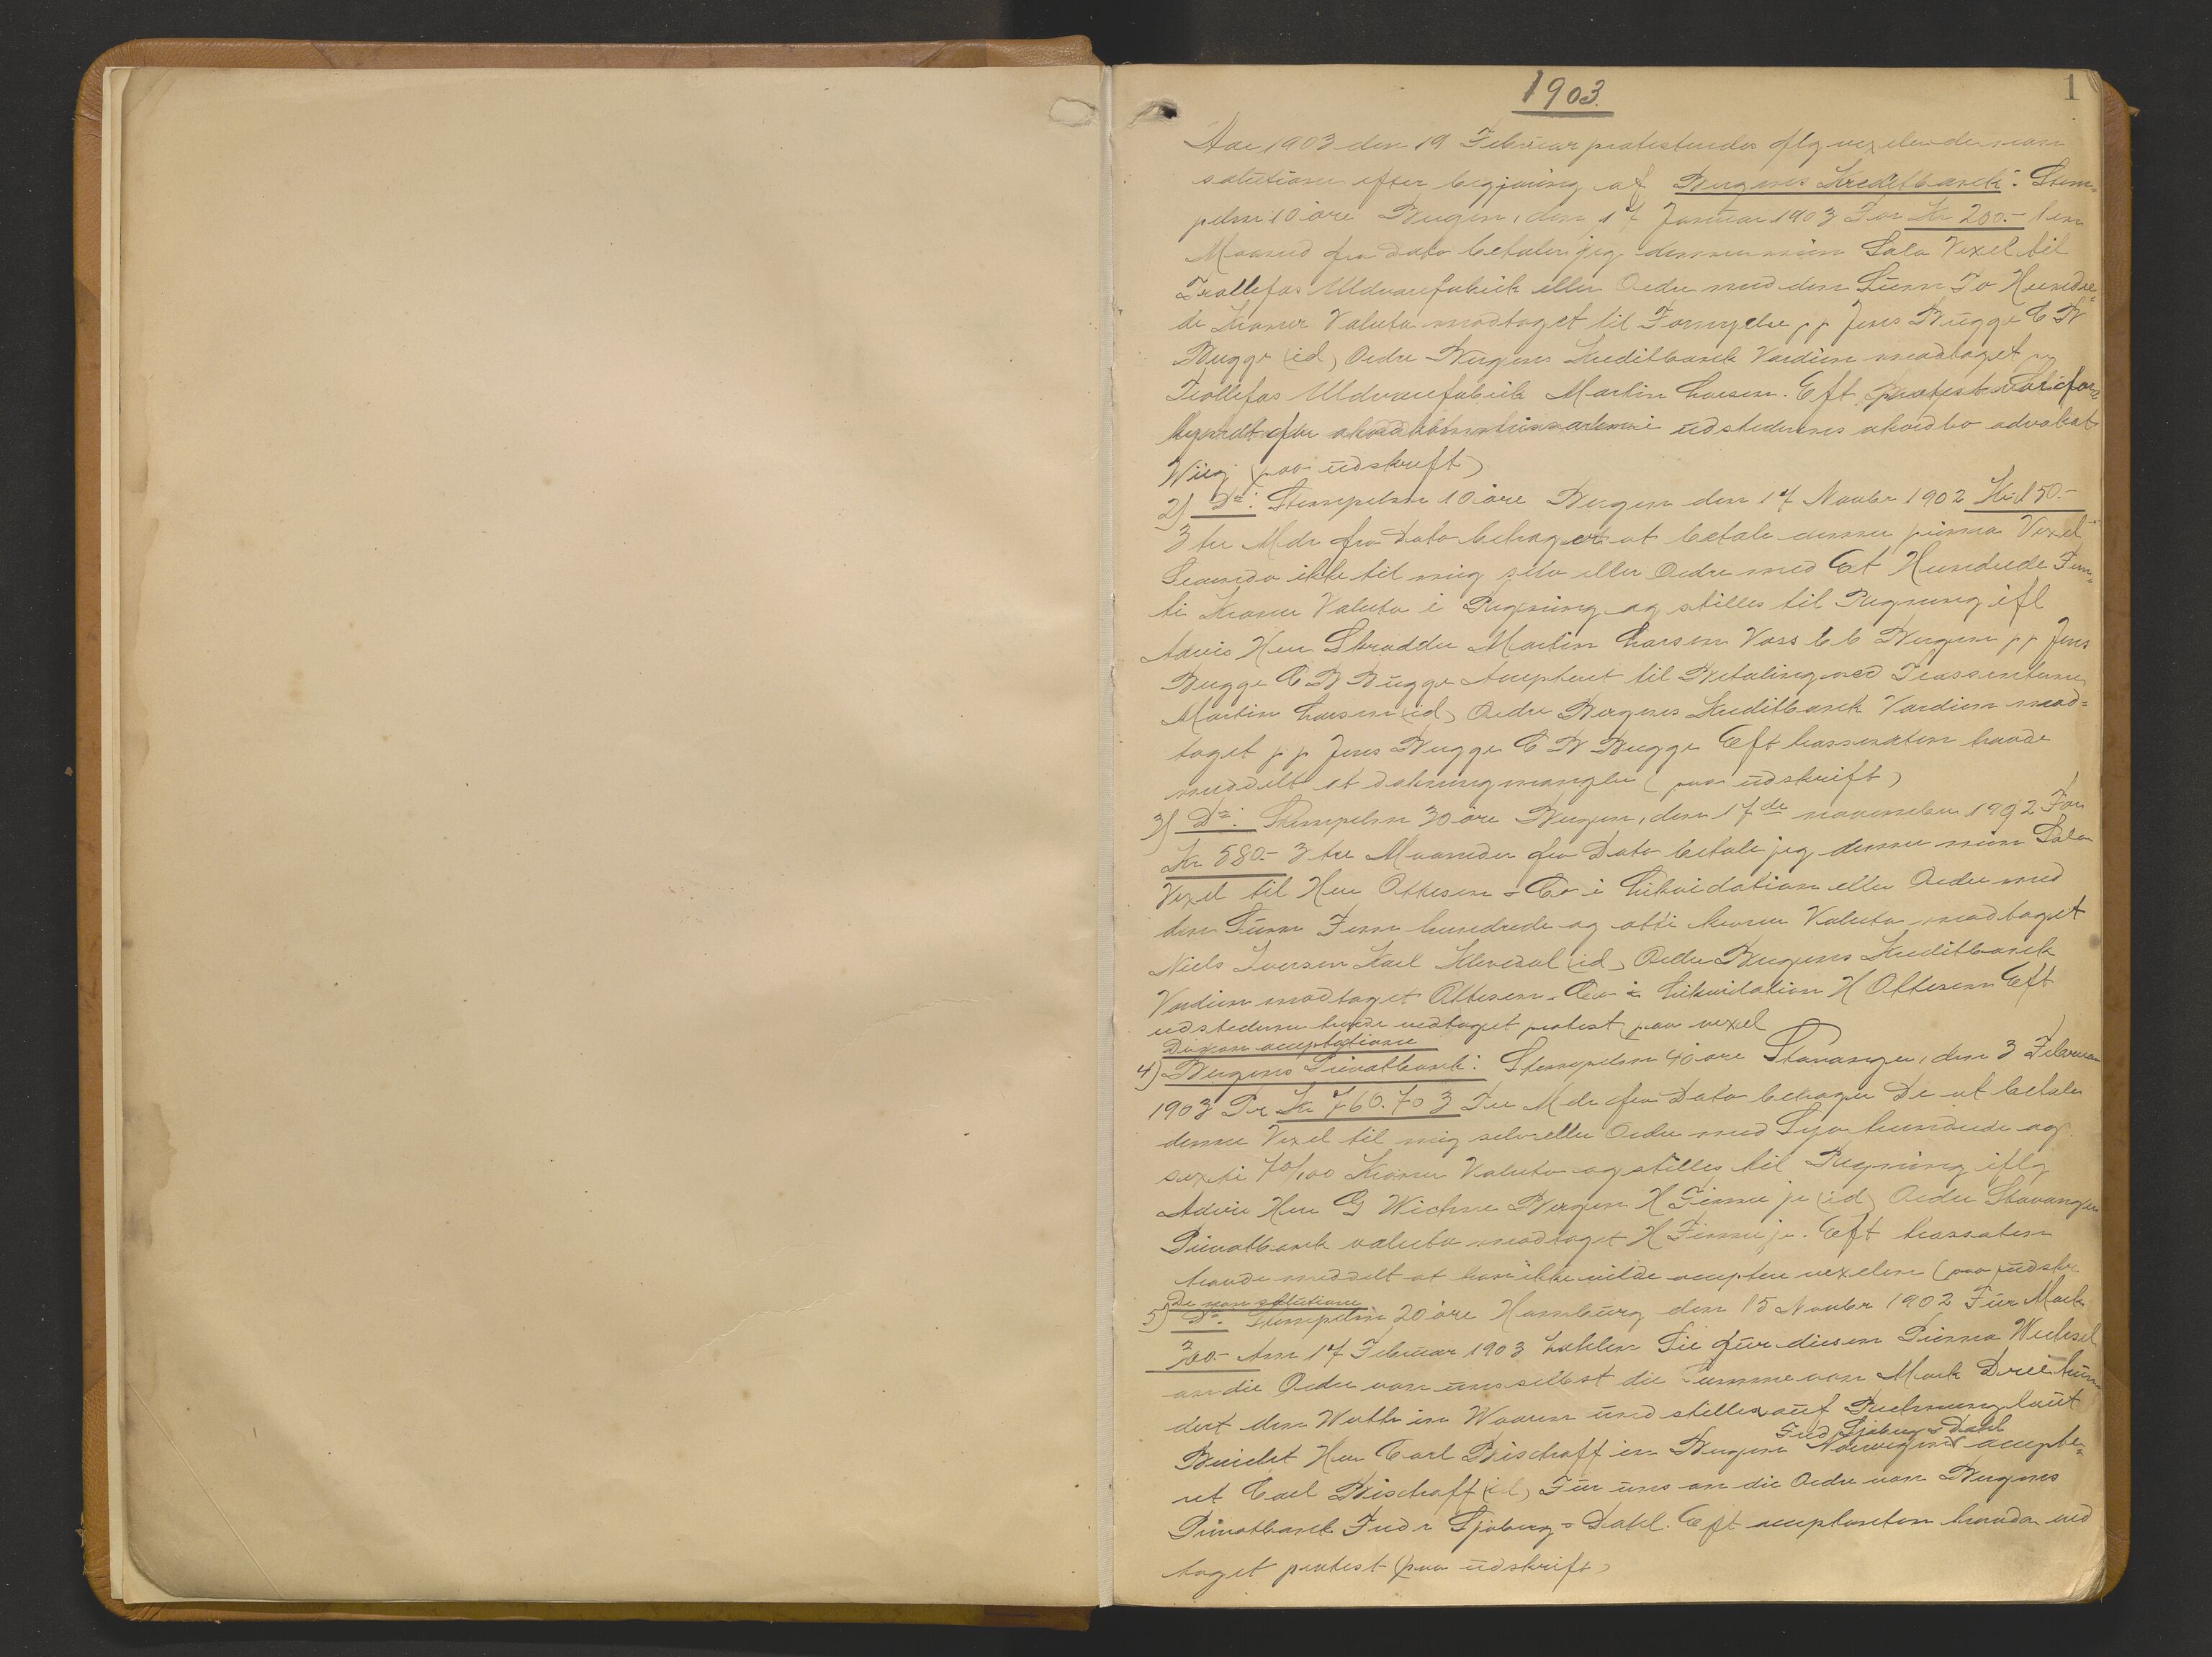 1903.
1
Aar 1903 den 19 Februar protesteredes flg vexler de non
solutione efter begjæring af Bergens Kreditbank: Stem-
pelm 10 öre Bergen, den 17 Januar 1903 For Kr 200.- 1 en
Maaned fra dato betaler jeg denne min Sola Vexel til
Trollefos Uldvarefabrik eller Ordre med den Sum To Hundre-
de Kroner Valuta modtaget til Fornyelse pp Jens Bugge C B
Bugge (id) Ordre Bergens Kreditbank Værdien modtaget
Trollefos Uldvarefabrik Martin Larsen. Eft protest var
i udstederens akordbo advokat
Wiig (paa udskrift)
2) Do: Stempelm 10 öre Bergen den 17 Novbr 1902 Kr 150.-
3 tre Mdr fra Dato behager at betale denne prima Vexel
Secunda ikke til mig selv eller Ordre med Et Hundrede Fem-
ti Kroner Valuta i Regning og stilles til Regning ifl
Advis Herr Skrædder Martin Larsen Voss Bergen pp Jens
Bugge C B Bugge Accepteret til Betaling ved Trassenten
Martin Larsen (id) Ordre Bergens Kreditbank Værdien mod-
taget pp Jens Bugge C B Bugge Eft trassenten havde
meddelt at dækning mangler (paa udskrift)
3) Do: Stempelm 30 öre Bergen, den 17de november 1902 For
Kr 580.- 3 tre Maaneder fra Dato betaler jeg denne min Sola
Vexel til Herr Ottesen & Co i Likvidation eller Ordre med
den Sum Fem hundrede og otti kroner Valuta modtaget
Niels Iversen Karl Klevdal (id) Ordre Bergens Kreditbank
Værdien modtaget Ottesen & Co i Likvidation H Ottesen Eft
udstederne havde vedtaget protest paa vexel
De non acceptatione
4) Bergens Privatbank: Stempelm 40 öre Stavanger, den 3 Februar
1903 Pr Kr 760.70 3 Tre Mdr fra Dato behager De at betale
denne Vexel til mig selv eller Ordre med Syv hundrede og
sexti 70/100 Kroner Valuta og stilles til Regning iflg
Advis Herr G Wichne Bergen H Finne jr (id) Ordre Stavanger
Privatbank valuta modtaget H Finne jr. Eft trassaten
havde meddelt at han ikke vilde acceptere vexelen (paa udskr
De non solutione
5) Do: Stempelm 20 öre Hamburg den 15 Novbr 1902 Für Mark
300.- Am 17 Februar 1903 zahlen Sie für diesen Prima Wechsel
an die Ordre von uns selbst die Summe von Mark Dreihun-
dert den Werth in Waaren und stellen auf Rechnung laut
Fredr Sjöberg & Dahl
Bericht Herr Carl Bischoff in Bergen Norwegen accepte-
ret Carl Bischoff (id) Für uns an die Ordre von Bergens
Privatbank Fredr Sjöberg & Dahl. Eft acceptanten havde ved
taget protest (paa udskrift)